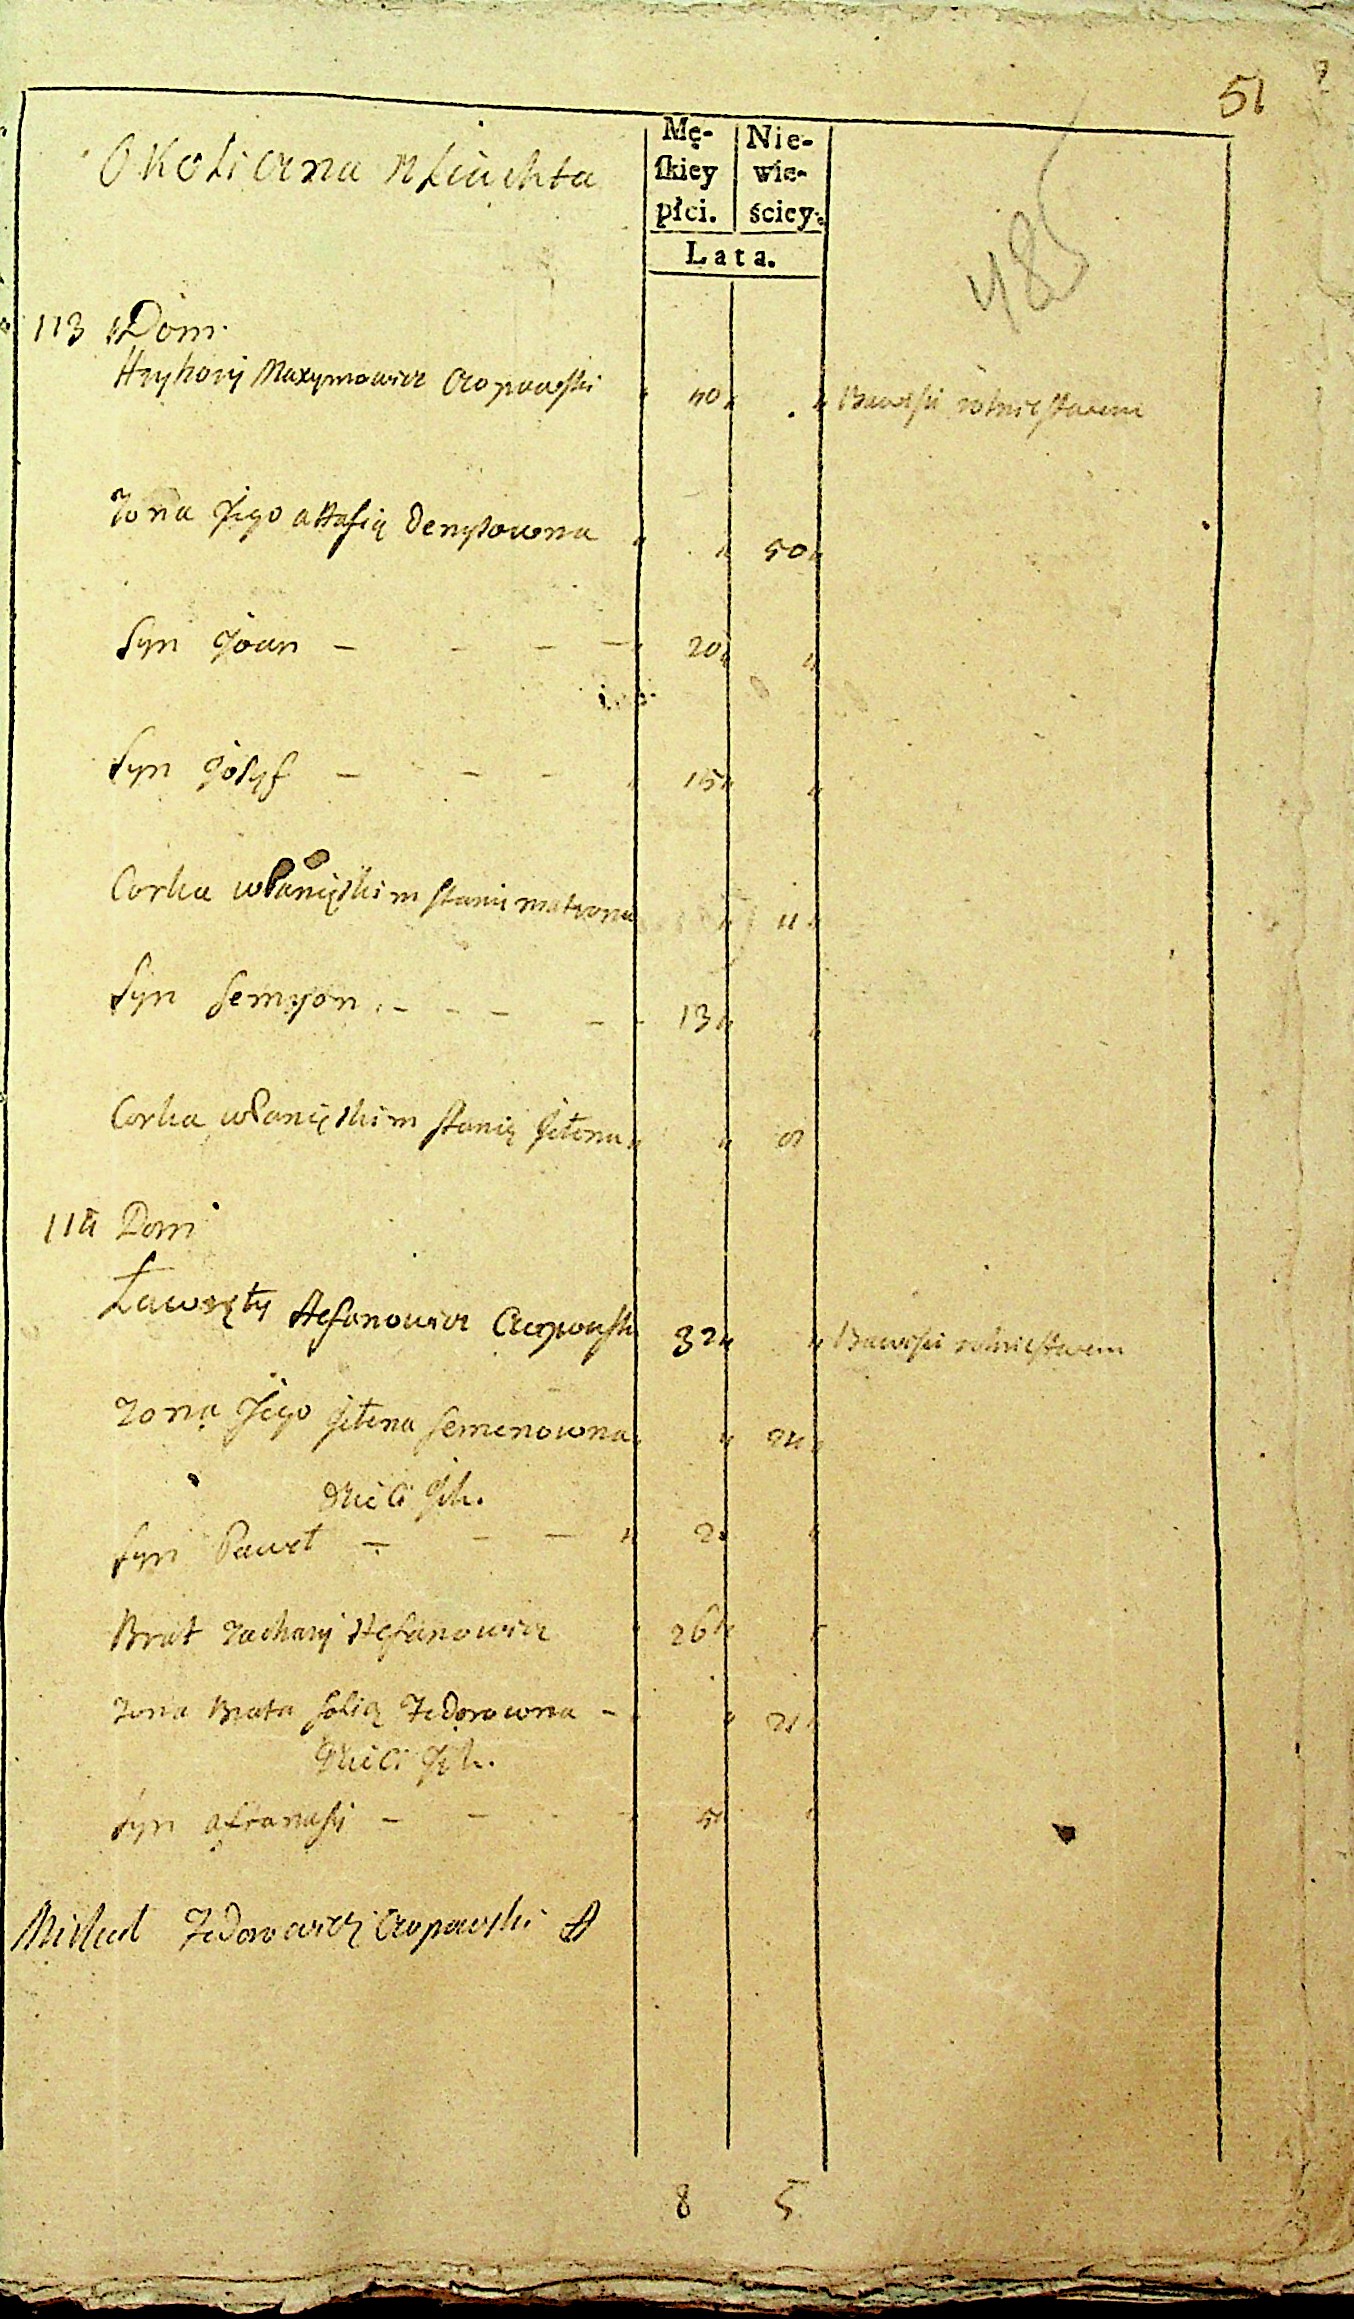 51
Okoliczna Szlachta
Mę-
skiey
płci.
Nie-
wie-
ściey.
Lata.
485
113 Dom
Hryhory Maxymowicz Czopowski 50 Bawi się rolnictwem
Żona Jego Nastasią Denysowna 50
Syn Joan — — — — 20
Syn Josyf — — — 15
Corka w Panięskim stanie matrona 11
Syn Semyon — — — — 13
Corka w Panięskim stanię Jełena
114 Dom
Ławręty Stefanowicz Czopowski 32 Bawi się rolnictwem
Żona Jego Jełena Semenowna 24
Dzieci Ich.
Syn Paweł — — — 2
Brat Zachary Stefanowicz 26
Żona Brata Fedorowna — 21
Dzieci Ich.
Syn Afranasy — — 5
Michał Fedorowicz Czopowski
8 5